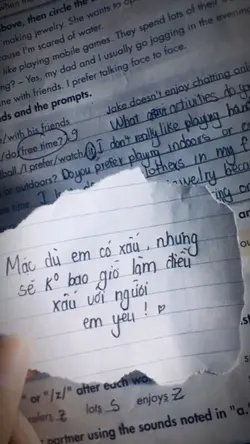 above, then circle the
making jewelry. She wants to
cause I'm scared of water.
like playing mobile games. They spend lots of their
ing? – Yes, my dad and I usually go jogging in the evening
me with friends. I prefer talking face to face.
ds and the prompts.
Jake doesn't enjoy chatting onli
/with his friends
What activities do yo
/do/free time? 9
I don't really like playing
ball./I prefer/watch
or outdoors? Do you prefer playing indoors or
others in my f
Mặc dù em có xấu, nhưng
sẽ k° bao giờ làm điều
xấu với người
em yêu! ♡
" or "/ɪz/" after each wo
z lots S enjoys Z
partner using the sounds noted in "a."